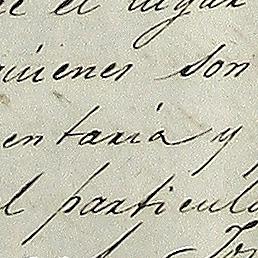 el lugar
quienes son
entaria y
l particula